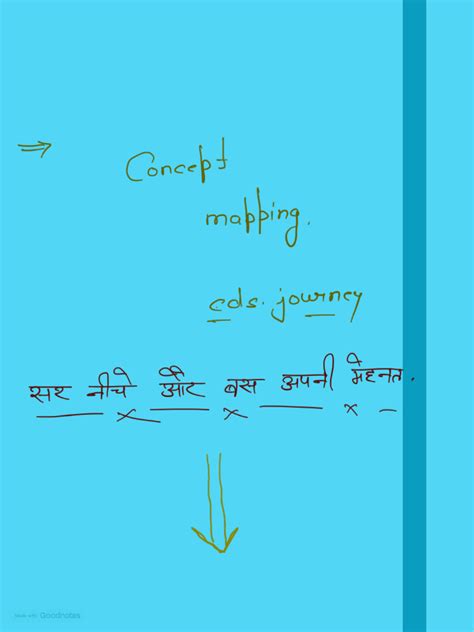 ⇒ Concept
mapping.
cds. journey
सर नीचे और बस अपनी मेहनत.
Made with Goodnotes